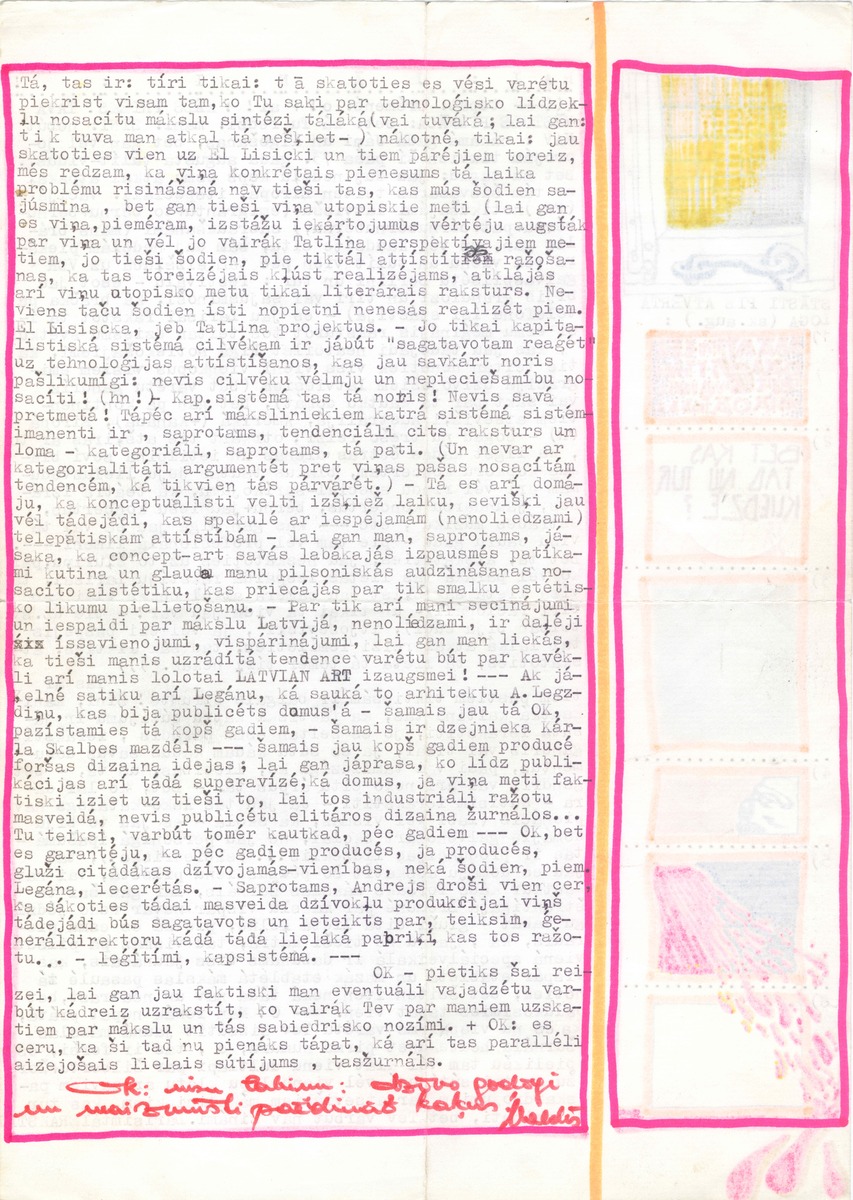 Tá, tas ir: tíri tikai: t ā skatoties es vési varétu
piekrist visam tam,ko Tu saķi par tehnoloģisko lídzek-
ļu nosacítu mákslu sintézi táláká(vai tuváká; lai gan:
t i k tuva man atkal tá nešķiet- ) nákotné, tikai: jau
skatoties vien uz El Lisicki un tiem páréjiem toreiz,
més redzam, ka viņa konkrétais pienesums tá laika
problému risinášaná nav tieši tas, kas mús šodien sa-
júsmina , bet gan tieši viņa utopiskie meti (lai gan
es viņa,pieméram, izstážu iekártojumus vértéju augsták
par viņa un vél jo vairák Tatlína perspektívajiem me-
tiem, jo tieši šodien, pie tiktál attístít ražoša-
nas, ka tas toreizéjais kļúst realizéjams, atklájás
arí viņu utopisko metu tikai literárais raksturs. Ne-
viens taču šodien ísti nopietni nenesás realizét piem.
El Lisiscka, jeb Tatlina projektus. - Jo tikai kapita-
listiská sistémá cilvékam ir jábút "sagatavotam reaģét"
uz tehnoloģijas attístíšanos, kas jau savkárt noris
pašlikumígi: nevis cilvéku vélmju un nepieciešamíbu no-
sacíti! (hn!)- Kap.sistémá tas tá noris! Nevis savá
pretmetá! Tápéc arí máksliniekiem katrá sistémá sistém-
imanenti ir , saprotams, tendenciáli cits raksturs un
loma - kategoriáli, saprotams, tá pati. (Un nevar ar
kategorialitáti argumentét pret viņas pašas nosacítám
tendencém, ká tikvien tás párvárét.) - Tá es arí domá-
ju, ka konceptuálisti velti izšķiež laiku, sevišķi jau
vél tádejádi, kas spekulé ar iespéjamám (nenoliedzami)
telepátiskám attístíbám - lai gan man, saprotams, já-
šaka, ka concept-art savás labákajás izpausmés patíka-
mi kutina un glauda manu pilsoniskás audzinášanas no-
sacíto aistétiku, kas priecájás par tik smalku estétis-
ko likumu pielietošanu. - Par tik arí mani secinájumi
un iespaidi par mákslu Latvijá, nenolíedzami, ir daļéji
xix íssavienojumi, vispárinájumi, lai gan man liekás,
ka tieši manis uzrádítá tendence varétu bút par kavék-
li arí manis lolotai LATVIAN ART izaugsmei! --- Ak já-
,elné satiku arí Legánu, ká sauká to arhitektu A.Legz-
diņu, kas bija publicéts domus'á - šamais jau tá OK,
pazístamies tá kopš gadiem, - šamais ir dzejnieka Kár-
ļa Skalbes mazdéls --- šamais jau kopš gadiem producé
foršas dizaina idejas; lai gan jáprasa, ko lídz publi-
kácijas arí tádá superavízé,ká domus, ja viņa meti fak-
tiski iziet uz tieši to, lai tos industriáli ražotu
masveidá, nevis publicétu elitáros dizaina žurnálos...
Tu teiksi, varbút tomér kautkad, péc gadiem --- OK,bet
es garantéju, ka péc gadiem producés, ja producés,
gluži citádákas dzívojamás-vienības, neká šodien, piem.
Legána, iecerétás. - Saprotams, Andrejs droši vien cer,
ka sákoties tádai masveida dzívokļu produkcijai viņš
tádejádi bús sagatavots un ieteikts par, teiksim, ģe-
neráldirektoru kádá tádá lieláká pabriķí, kas tos ražo-
tu... - leģítími, kapsistémá. ---
OK - pietiks šai rei-
zei, lai gan jau faktiski man eventuáli vajadzétu var-
bút kádreiz uzrakstít, ko vairák Tev par maniem uzska-
tiem par mákslu un tás sabiedrisko nozími. + OK: es
ceru, ka ši tad nu pienáks tápat, ká arí tas paralléli
aizejošais lielais sútíjums , tasžurnáls.
Ok: visu labinu: dzīvo godīgi
un